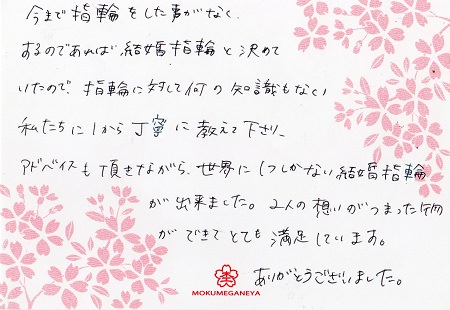 今まで指輪をした事がなく、
するのであれば結婚指輪と決めて
いたので、指輪に対して何の知識もない
私たちに1から丁寧に教えて下さり、
アドバイスも頂きながら、世界に1つしかない結婚指輪
が出来ました。2人の想いがつまった物
ができてとても満足しています。
ありがとうございました。
MOKUMEGANEYA